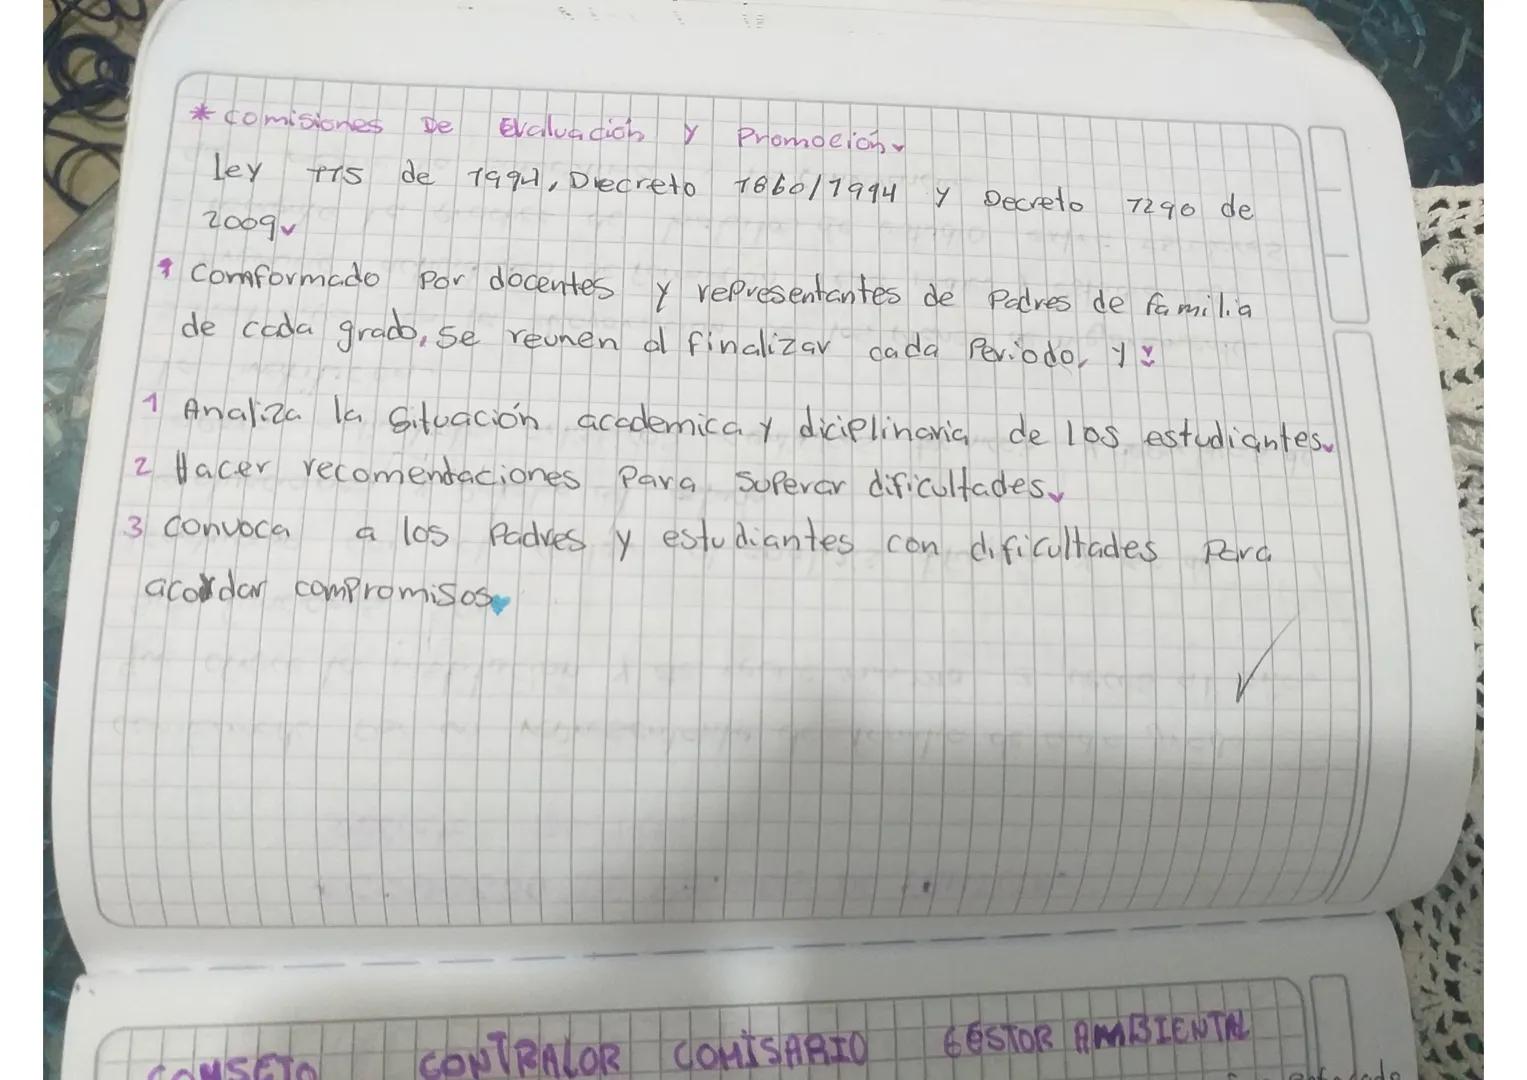 * comisiones De Evaluación y Promoción
ley 115 de 1994, Decreto 1860/1994 y Decreto 1290 de
2009
* Comformado por docentes y representantes de Padres de familia
de cada grado, se reunen al finalizar cada Periodo, y:
1 Analiza la situación academica y diciplinaria de los estudiantes.
2 Hacer recomendaciones Para superar dificultades.
3 convoca a los Padres y estudiantes con dificultades Para
acordar compromisos.
CONTRALOR COMISARIO GESTOR AMBIENTAL